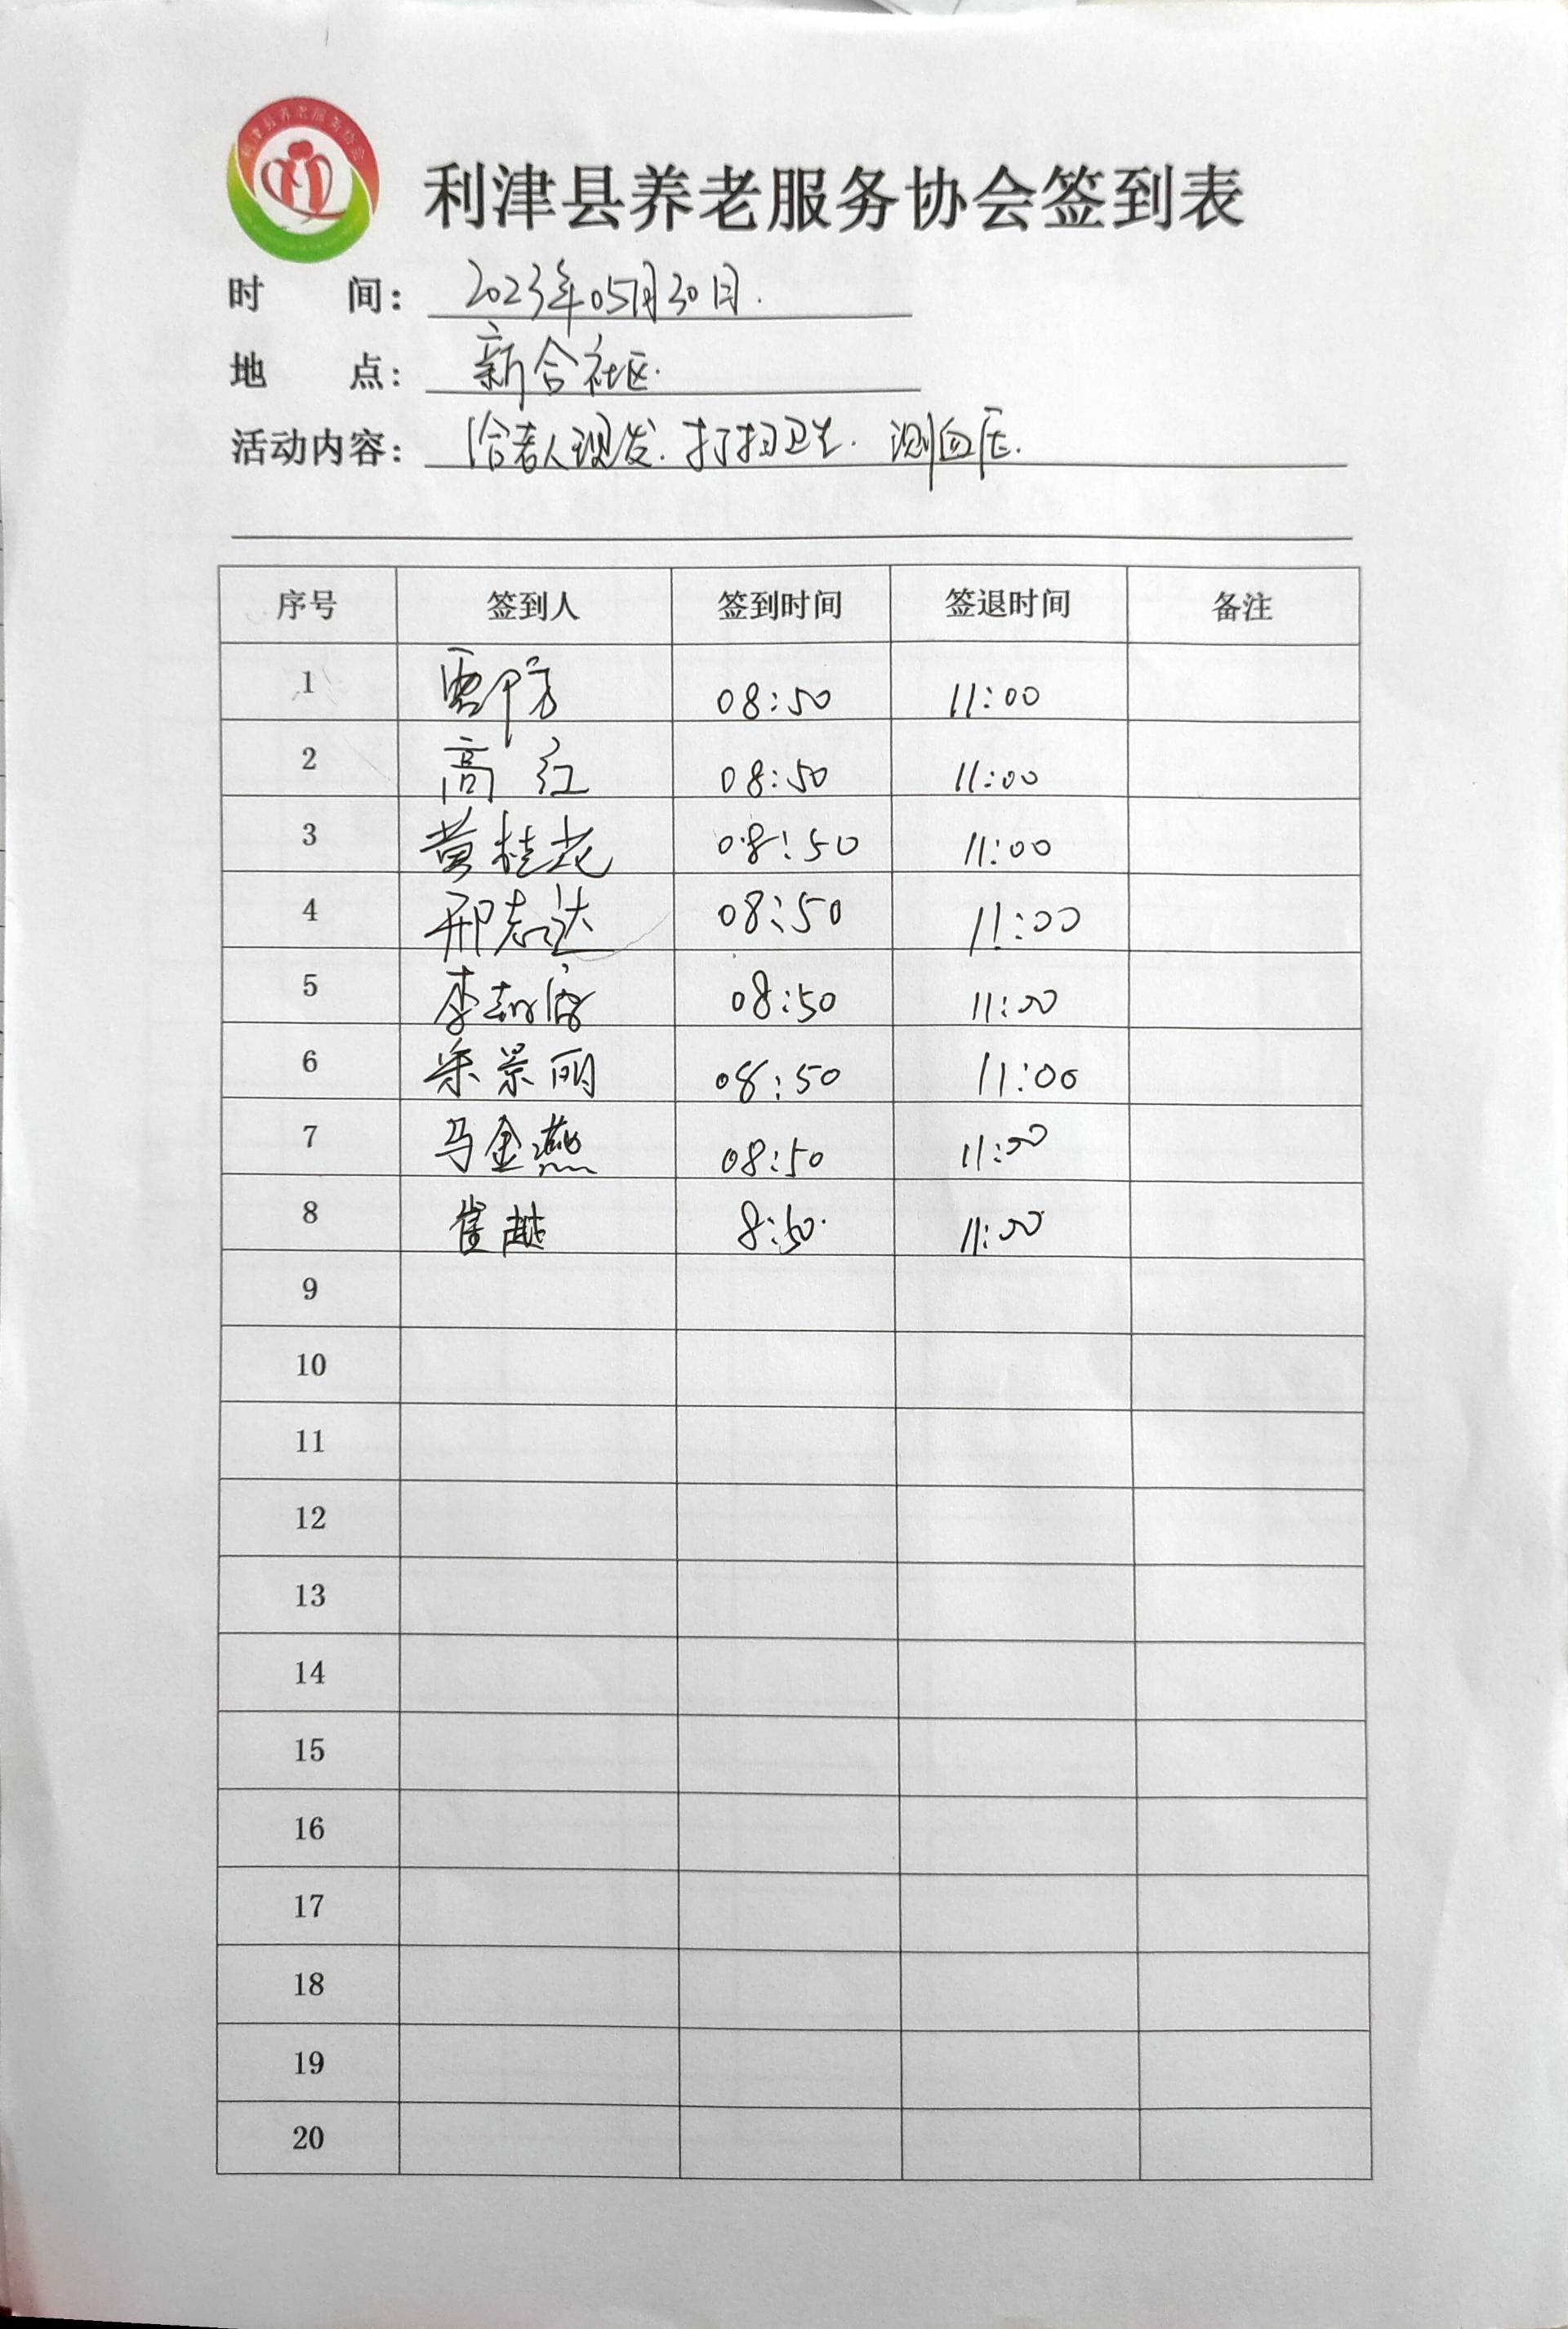 利津县养老服务协会
利津县养老服务协会签到表
时 间: 2023年05月30日.
地 点: 新合社区.
活动内容: 给老人理发. 打扫卫生. 测血压.
序号 签到人 签到时间 签退时间 备注
1 08:50 11:00
2 高红 08:50 11:00
3 黄桂花 08:50 11:00
4 邢志达 08:50 11:00
5 李 08:50 11:00
6 景丽 08:50 11:00
7 马金燕 08:50 11:00
8 崔越 8:50. 11:00
9
10
11
12
13
14
15
16
17
18
19
20